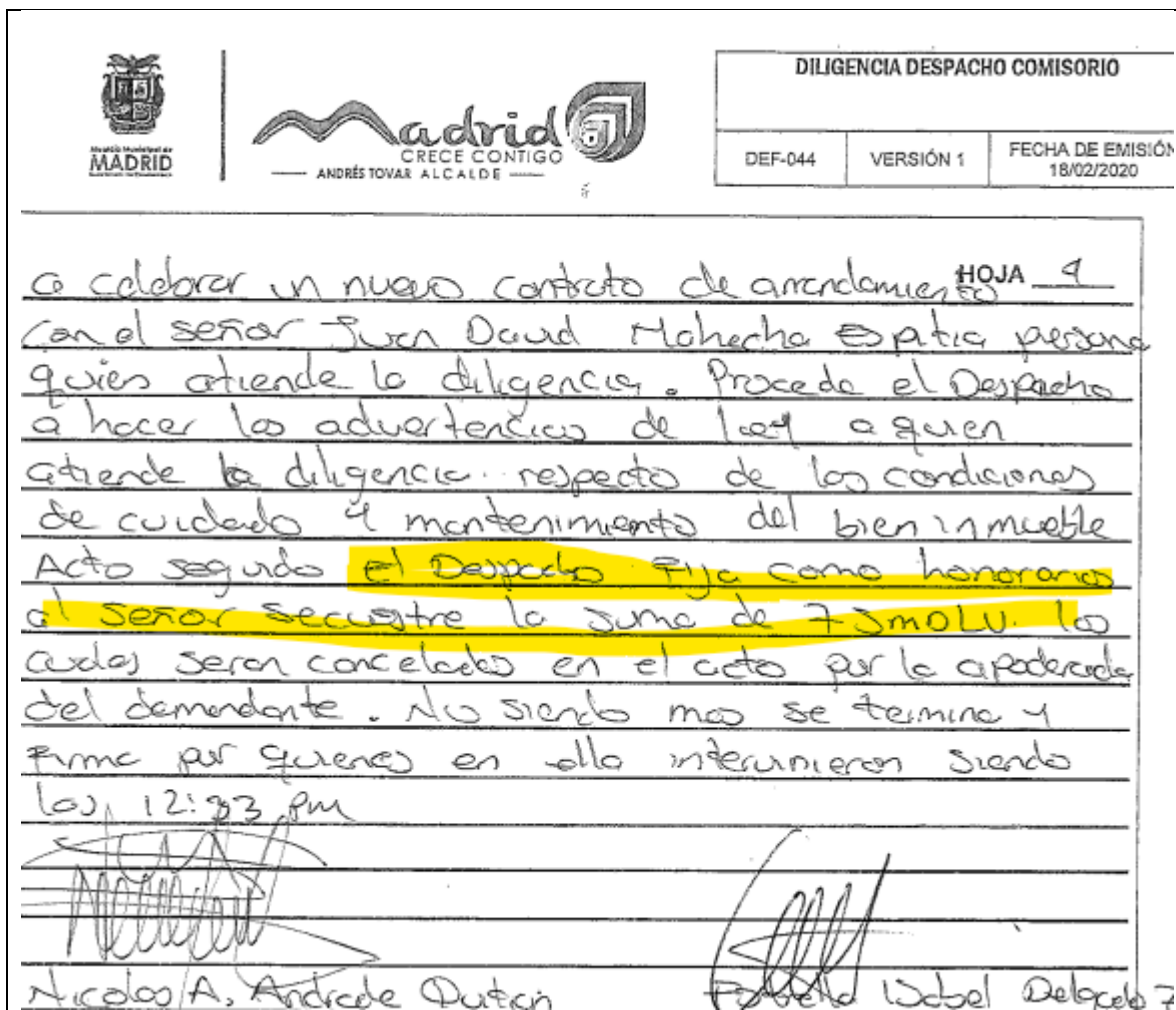 DILIGENCIA DESPACHO COMISORIO
Alcaldía Municipal de
MADRID
Madrid
CRECE CONTIGO
ANDRÉS TOVAR ALCALDE
DEF-044 VERSIÓN 1 FECHA DE EMISIÓN
18/02/2020
HOJA 4
a celebrar un nuevo contrato de arrendamiento
con el señor Juan David Mahecha Espitia persona
quien atiende la diligencia. Procede el Despacho
a hacer las advertencias de Ley a quien
atiende la diligencia respecto de las condiciones
de cuidado y mantenimiento del bien inmueble
Acto seguido el Despacho Fija como honorarios
al señor secuestre la suma de 7 SMDLV. los
cuales seran cancelados en el acto por la apoderada
del demandante. No siendo mas se termina y
Firma por quienes en ella intervinieron siendo
las 12:33 pm
Nicolas A. Andrade Quitian
Isabel Delgado